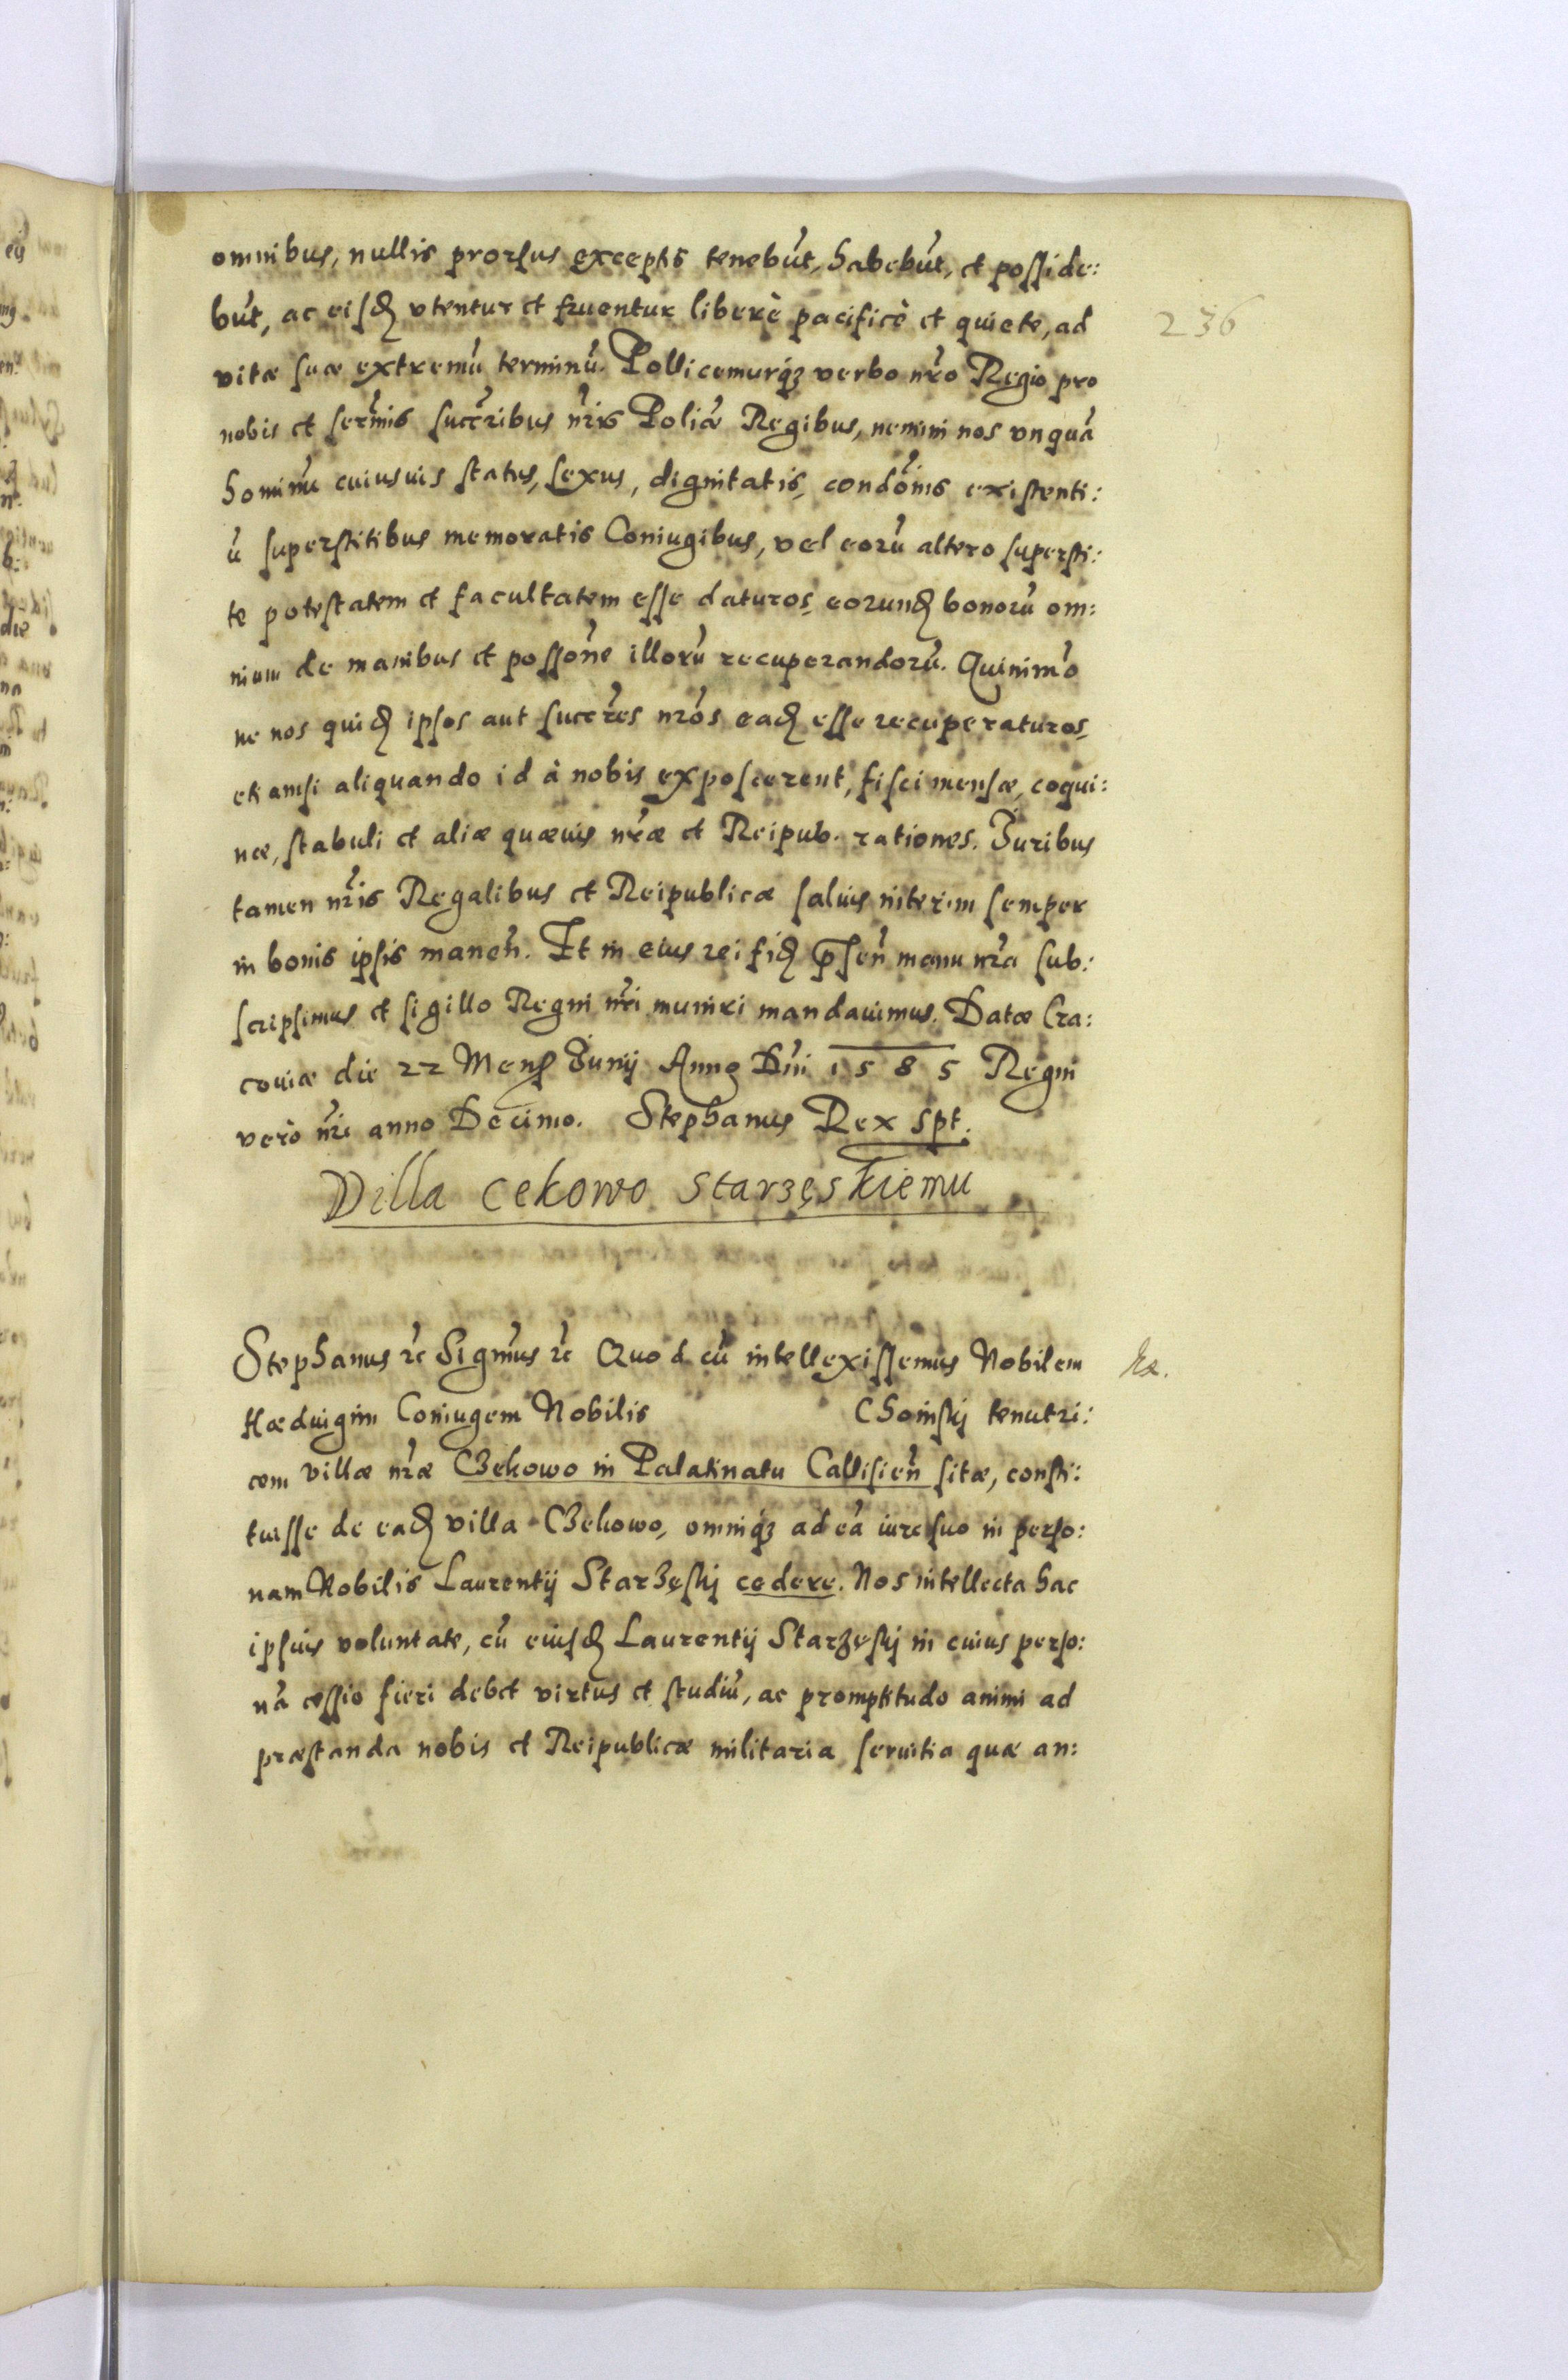 omnibus, nullis prorsus exceptis tenebūt, habebūt, et posside:
būt, ac eisd. vtentur et fruentur liberè pacificè et quiete, ad
236
vitæ suæ extremū terminū. Pollicemurq3 verbo nr̃o Regio pro
nobis et serm̃is succr̃ibus nr̃is Polīæ Regibus, nemini nos vnquā
hominū cuiusuis status, sexus, dignitatis, condõnis existenti:
ū superstitibus memoratis Coniugibus, vel eorū altero supersti:
te potestatem et facultatem esse daturos, eorund. bonorū om:
nium de manibus et possõne illorū recuperandorū. Quinimò
ne nos quid. ipsos aut succr̃es nr̃os ead. esse recuperaturos,
etiamsi aliquando id à nobis exposcerent, fisci mensæ, coqui:
næ, stabuli et aliæ quæuis nr̃æ et Reipub. rationes. Iuribus
tamen nr̃is Regalibus et Reipublicæ saluis interim semper
in bonis ipsis maneñ. Et in eius rei fid. p̄señ manu nr̃a sub:
scripsimus et sigillo Regni nr̃i muniri mandauimus. Datæ Cra:
couiæ die 22 Mens Iunij Anno Dñi 1585 Regni
verò nr̃i anno Decimo. Stephanus Rex spt.
Villa Cekowo Starzęskiemu
Stephanus rc̃ Sigm̃us rc̃ Quod cū intellexissemus Nobilem
Hæduigim Coniugem Nobilis Choinskj tenutri:
cem villæ nr̃æ Czekowo in Palatinatu Callisieñ sitæ, consti:
tuisse de ead. villa Czekowo, omniq3 ad eā iure suo in perso:
nam Nobilis Laurentij Starzęskj cedere. Nos intellecta hac
ipsius voluntate, cū eiusd. Laurentij Starzęskj in cuius perso:
nā cessio fieri debet virtus et studiū, ac promptitudo animi ad
præstanda nobis et Reipublicæ militaria seruitia quæ an: